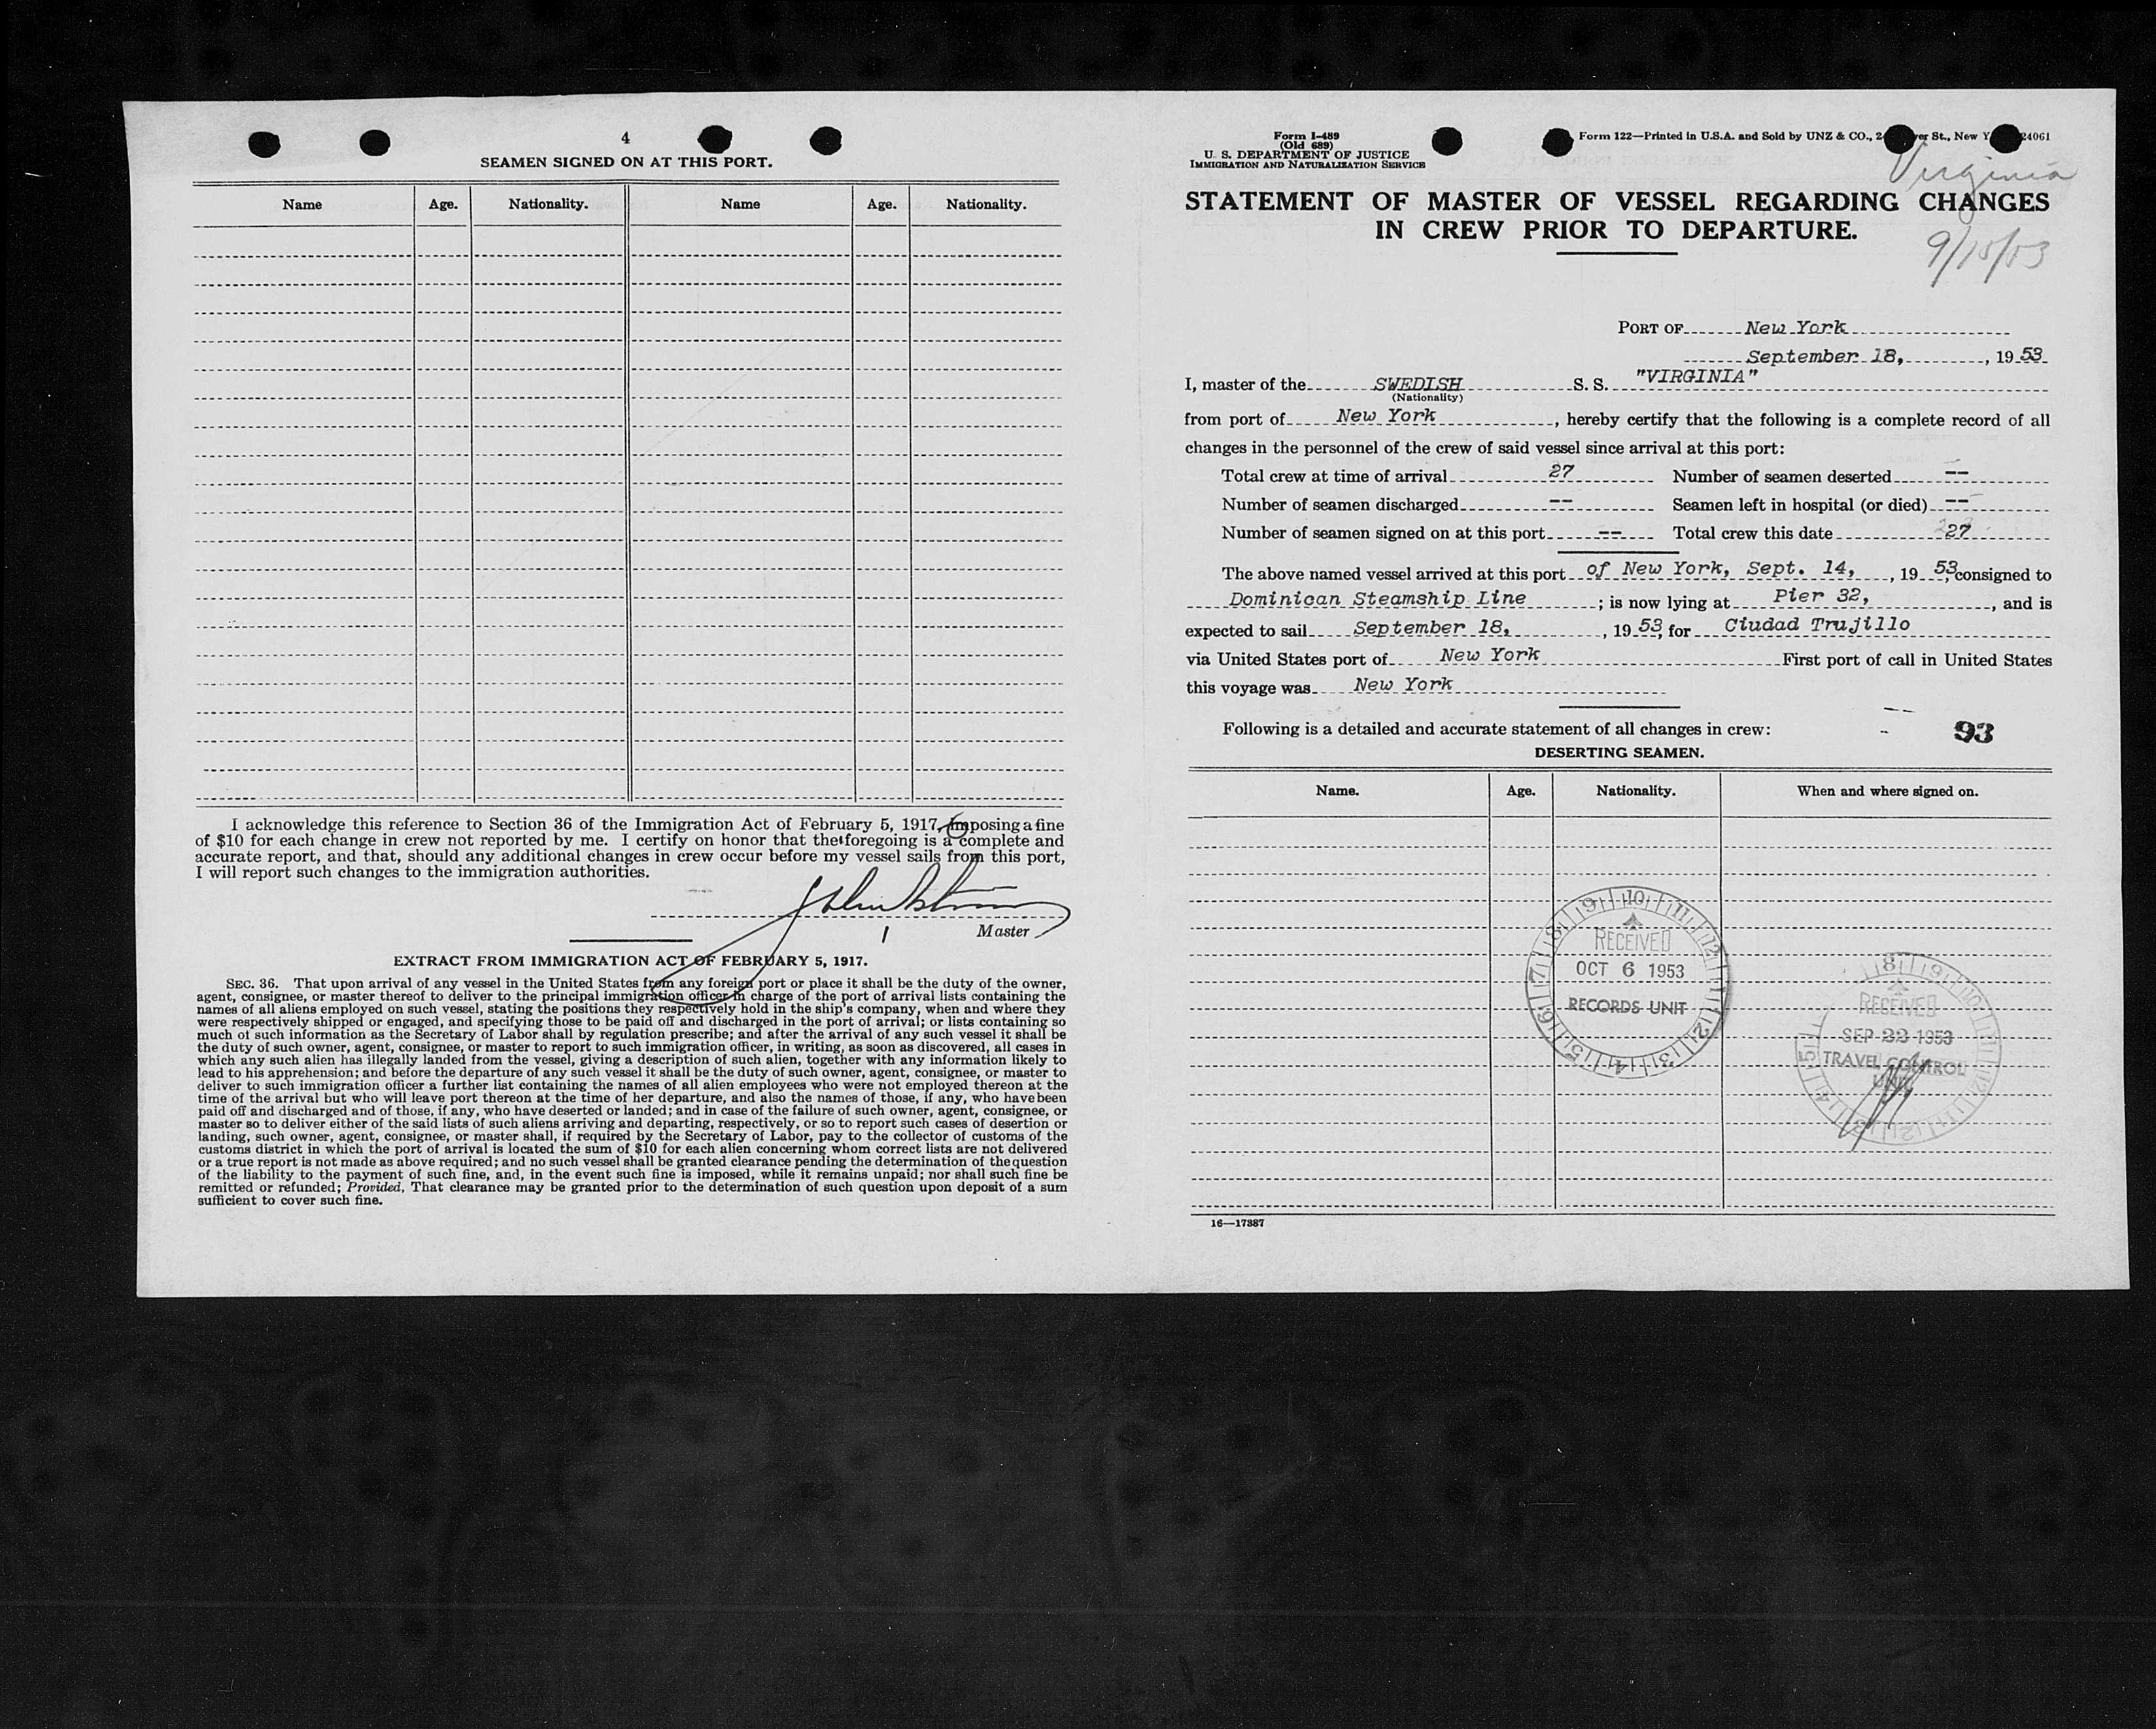 4
SEAMEN SIGNED ON AT THIS PORT.
Name Age. Nationality. Name Age. Nationality.
I acknowledge this reference to Section 36 of the Immigration Act of February 5, 1917, imposing a fine
of $10 for each change in crew not reported by me. I certify on honor that the foregoing is a complete and
accurate report, and that, should any additional changes in crew occur before my vessel sails from this port,
I will report such changes to the immigration authorities.
Master
EXTRACT FROM IMMIGRATION ACT OF FEBRUARY 5, 1917.
SEC. 36. That upon arrival of any vessel in the United States from any foreign port or place it shall be the duty of the owner,
agent, consignee, or master thereof to deliver to the principal immigration officer in charge of the port of arrival lists containing the
names of all aliens employed on such vessel, stating the positions they respectively hold in the ship's company, when and where they
were respectively shipped or engaged, and specifying those to be paid off and discharged in the port of arrival; or lists containing so
much of such information as the Secretary of Labor shall by regulation prescribe; and after the arrival of any such vessel it shall be
the duty of such owner, agent, consignee, or master to report to such immigration officer, in writing, as soon as discovered, all cases in
which any such alien has illegally landed from the vessel, giving a description of such alien, together with any information likely to
lead to his apprehension; and before the departure of any such vessel it shall be the duty of such owner, agent, consignee, or master to
deliver to such immigration officer a further list containing the names of all alien employees who were not employed thereon at the
time of the arrival but who will leave port thereon at the time of her departure, and also the names of those, if any, who have been
paid off and discharged and of those, if any, who have deserted or landed; and in case of the failure of such owner, agent, consignee, or
master so to deliver either of the said lists of such aliens arriving and departing, respectively, or so to report such cases of desertion or
landing, such owner, agent, consignee, or master shall, if required by the Secretary of Labor, pay to the collector of customs of the
customs district in which the port of arrival is located the sum of $10 for each alien concerning whom correct lists are not delivered
or a true report is not made as above required; and no such vessel shall be granted clearance pending the determination of the question
of the liability to the payment of such fine, and, in the event such fine is imposed, while it remains unpaid; nor shall such fine be
remitted or refunded; Provided, That clearance may be granted prior to the determination of such question upon deposit of a sum
sufficient to cover such fine.
Form I-489
(Old 689)
U. S. DEPARTMENT OF JUSTICE
IMMIGRATION AND NATURALIZATION SERVICE
Form 122—Printed in U.S.A. and Sold by UNZ & CO., St., New 24061
Virginia
STATEMENT OF MASTER OF VESSEL REGARDING CHANGES
IN CREW PRIOR TO DEPARTURE.
9/15/53
PORT OF New York
September 18, , 19 53
I, master of the SWEDISH S. S. "VIRGINIA"
(Nationality)
from port of New York , hereby certify that the following is a complete record of all
changes in the personnel of the crew of said vessel since arrival at this port:
Total crew at time of arrival 27 Number of seamen deserted --
Number of seamen discharged -- Seamen left in hospital (or died) --
Number of seamen signed on at this port -- Total crew this date 27
The above named vessel arrived at this port of New York, Sept. 14, , 19 53, consigned to
Dominican Steamship Line ; is now lying at Pier 32, , and is
expected to sail September 18, , 19 53, for Ciudad Trujillo
via United States port of New York First port of call in United States
this voyage was New York
Following is a detailed and accurate statement of all changes in crew: 93
DESERTING SEAMEN.
Name. Age. Nationality. When and where signed on.
RECEIVED
OCT 6 1953
RECORDS UNIT
RECEIVED
SEP 22 1953
TRAVEL CONTROL
UNIT
16—17387